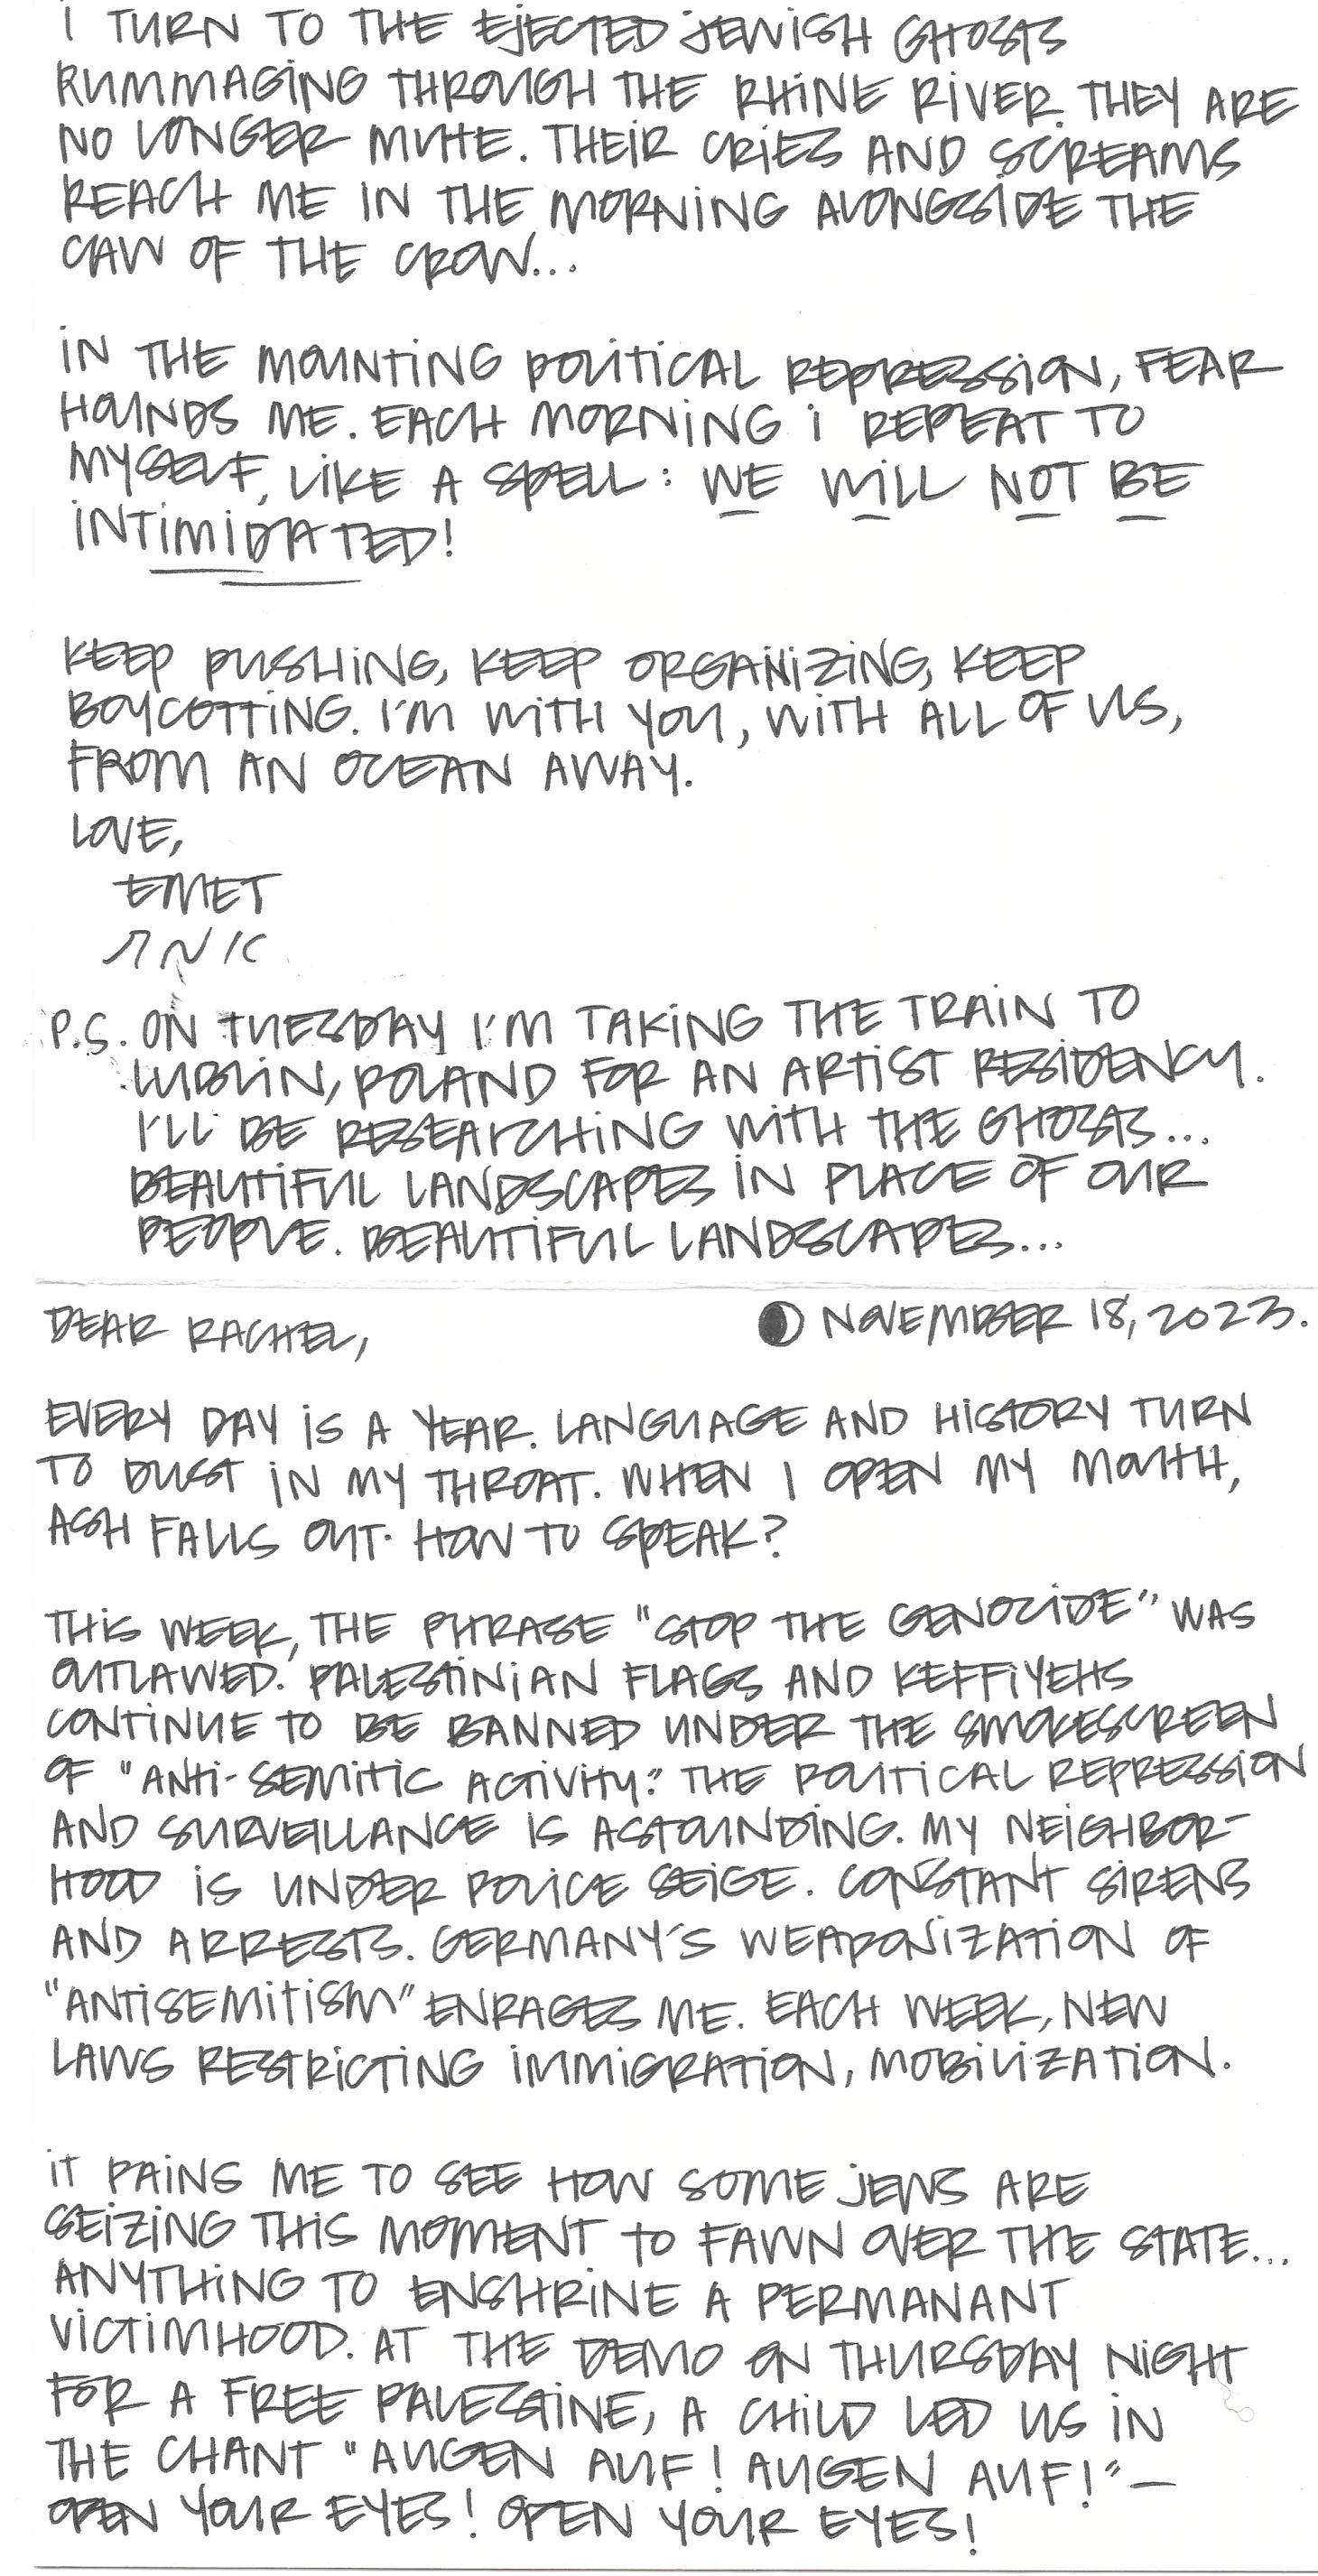 I TURN TO THE EJECTED JEWISH GHOSTS
RUMMAGING THROUGH THE RHINE RIVER. THEY ARE
NO LONGER MUTE. THEIR CRIES AND SCREAMS
REACH ME IN THE MORNING ALONGSIDE THE
CAW OF THE CROW...
IN THE MOUNTING POLITICAL REPRESSION, FEAR
HOUNDS ME. EACH MORNING I REPEAT TO
MYSELF, LIKE A SPELL: WE WILL NOT BE
INTIMIDATED!
KEEP PUSHING, KEEP ORGANIZING, KEEP
BOYCOTTING. I'M WITH YOU, WITH ALL OF US,
FROM AN OCEAN AWAY.
LOVE,
EMET
אמת
P.S. ON TUESDAY I'M TAKING THE TRAIN TO
LUBLIN, POLAND FOR AN ARTIST RESIDENCY.
I'LL BE RESEARCHING WITH THE GHOSTS...
BEAUTIFUL LANDSCAPES IN PLACE OF OUR
PEOPLE. BEAUTIFUL LANDSCAPES...
DEAR RACHEL, NOVEMBER 18, 2023.
EVERY DAY IS A YEAR. LANGUAGE AND HISTORY TURN
TO DUST IN MY THROAT. WHEN I OPEN MY MOUTH,
ASH FALLS OUT. HOW TO SPEAK?
THIS WEEK, THE PHRASE "STOP THE GENOCIDE" WAS
OUTLAWED. PALESTINIAN FLAGS AND KEFFIYEHS
CONTINUE TO BE BANNED UNDER THE SMOKESCREEN
OF "ANTI-SEMITIC ACTIVITY." THE POLITICAL REPRESSION
AND SURVEILLANCE IS ASTOUNDING. MY NEIGHBOR-
HOOD IS UNDER POLICE SEIGE. CONSTANT SIRENS
AND ARRESTS. GERMANY'S WEAPONIZATION OF
"ANTISEMITISM" ENRAGES ME. EACH WEEK, NEW
LAWS RESTRICTING IMMIGRATION, MOBILIZATION.
IT PAINS ME TO SEE HOW SOME JEWS ARE
SEIZING THIS MOMENT TO FAWN OVER THE STATE...
ANYTHING TO ENSHRINE A PERMANANT
VICTIMHOOD. AT THE DEMO ON THURSDAY NIGHT
FOR A FREE PALESTINE, A CHILD LED US IN
THE CHANT "AUGEN AUF! AUGEN AUF!" —
OPEN YOUR EYES! OPEN YOUR EYES!